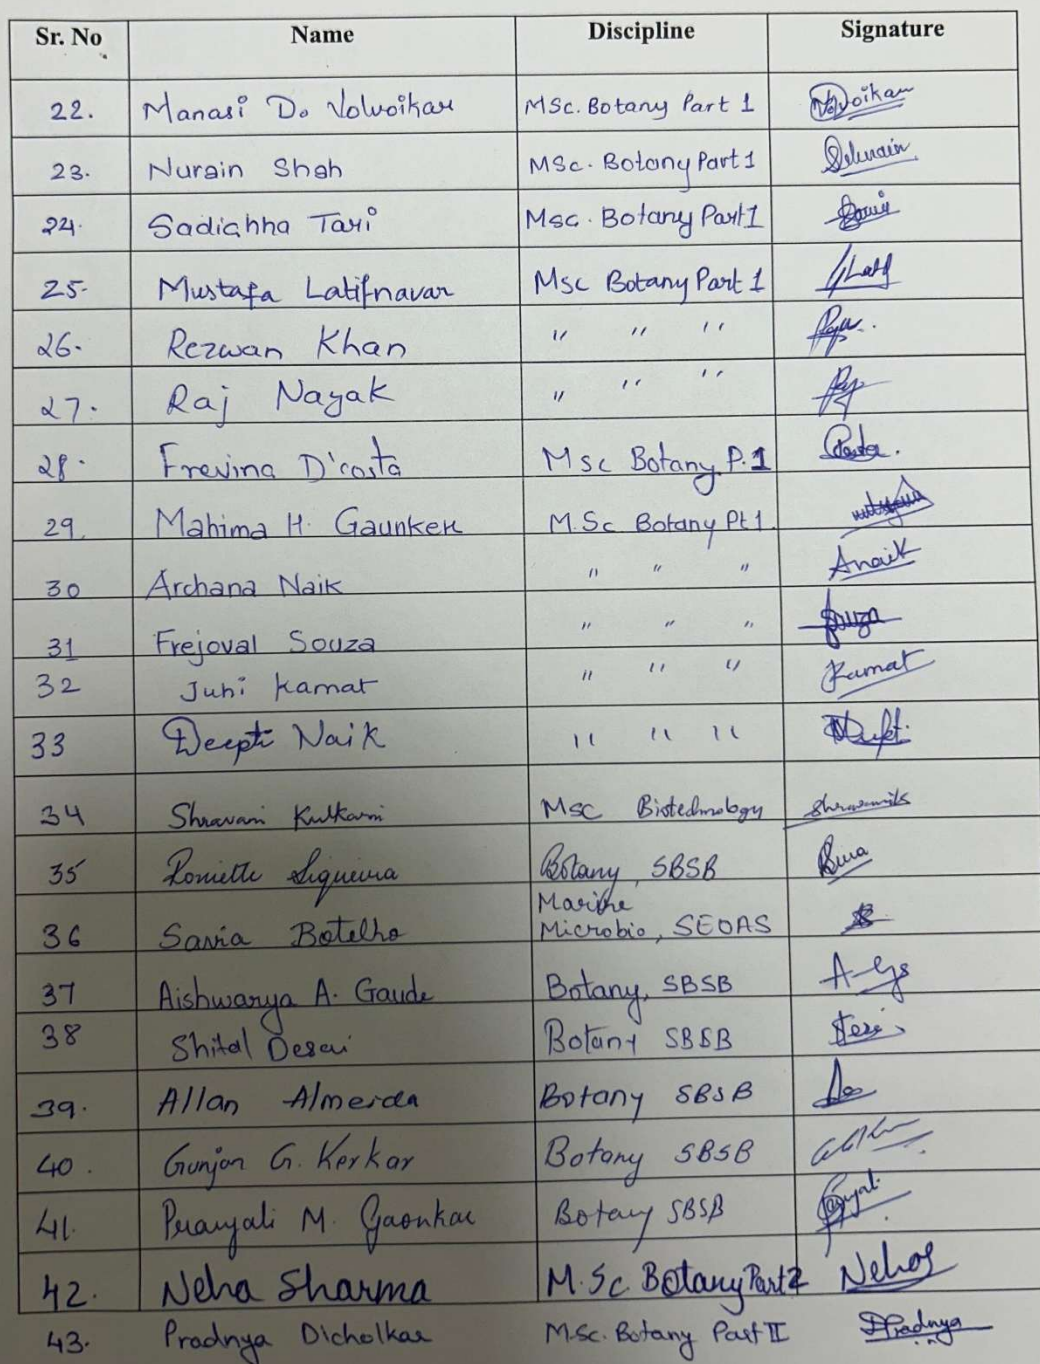 Sr. No Name Discipline Signature
22. Manasi D. Volvoikar MSc. Botany Part 1 Volvoikar
23. Nurain Shah MSc. Botany Part 1
24. Sadichha Tari Msc. Botany Part 1
25. Mustafa Latifnavar Msc Botany Part 1
26. Rezwan Khan " " "
27. Raj Nayak " " "
28. Frevina D'costa Msc Botany P.1
29. Mahima H. Gaunker M.Sc Botany Pt 1.
30 Archana Naik " " " Anaik
31 Frejoval Souza " " " Souza
32 Juhi Kamat " " " Kamat
33 Deepti Naik " " "
34 Shravani Kulkarni Msc Biotechnology Shravanik
35 Romiette Siqueira Botany, SBSB
Marine
36 Savia Botelho Microbio, SEOAS
37 Aishwarya A. Gaude Botany, SBSB
38 Shital Desai Botany SBSB
39. Allan Almeida Botany SBSB
40. Gunjan G. Kerkar Botany SBSB
41. Pranjali M. Gaonkar Botany SBSB
42. Neha Sharma M.Sc. Botany Part 2 Nehas
43. Pradnya Dicholkar M.Sc. Botany Part II Pradnya